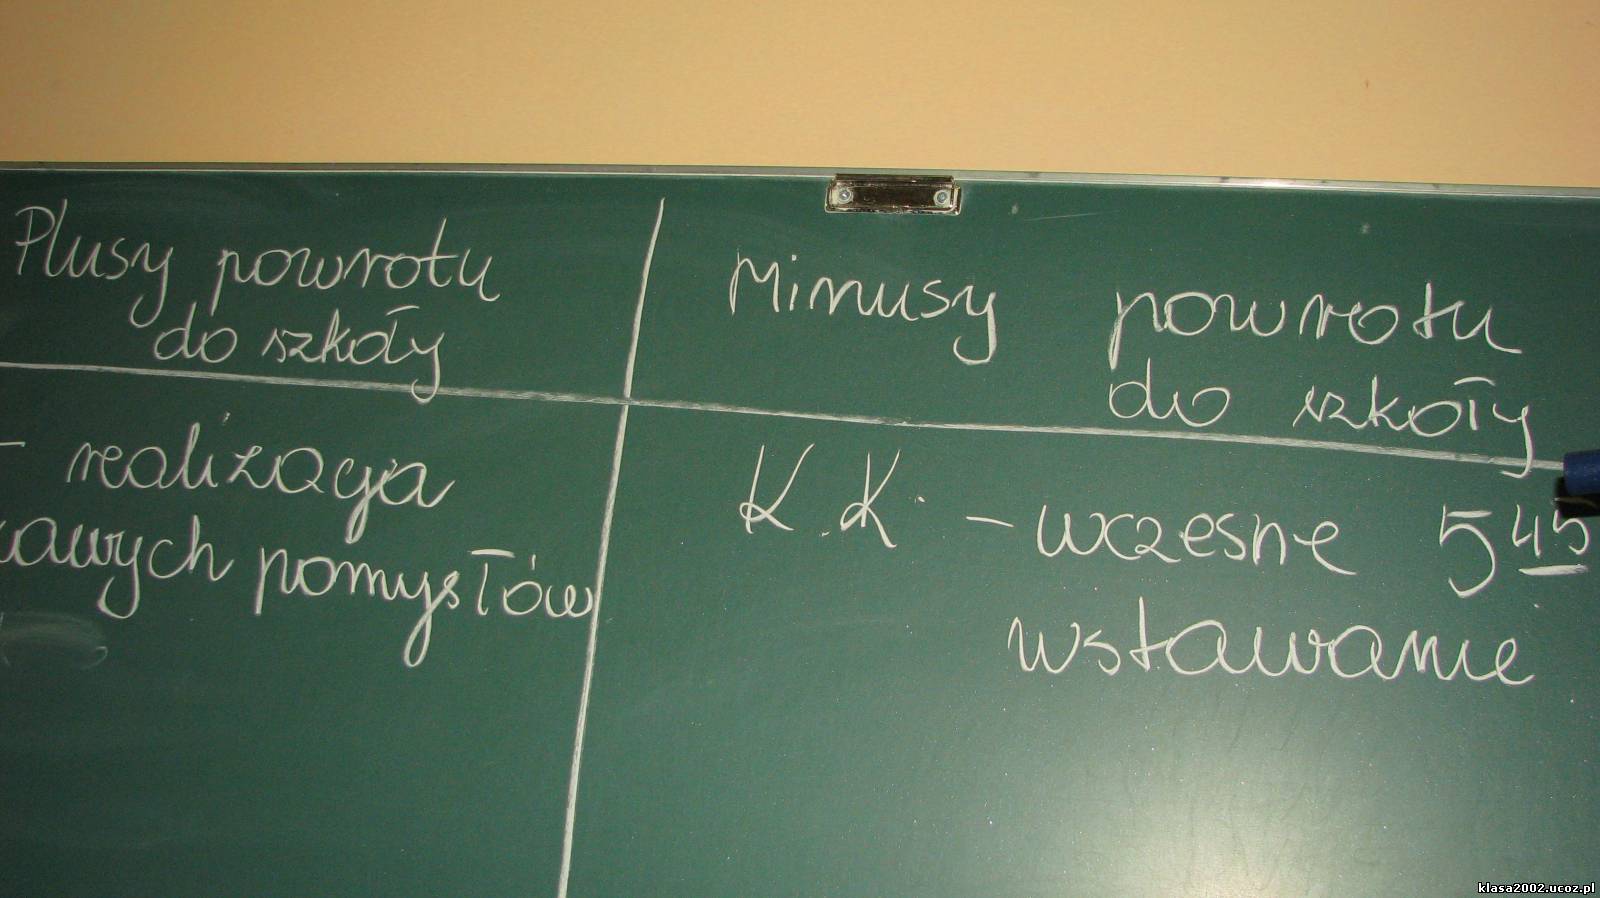 Plusy powrotu
do szkoły
- realizacja
kawych pomysłów
Minusy powrotu
do szkoły
K.K. - wczesne 5 45
wstawanie
klasa2002.ucoz.pl